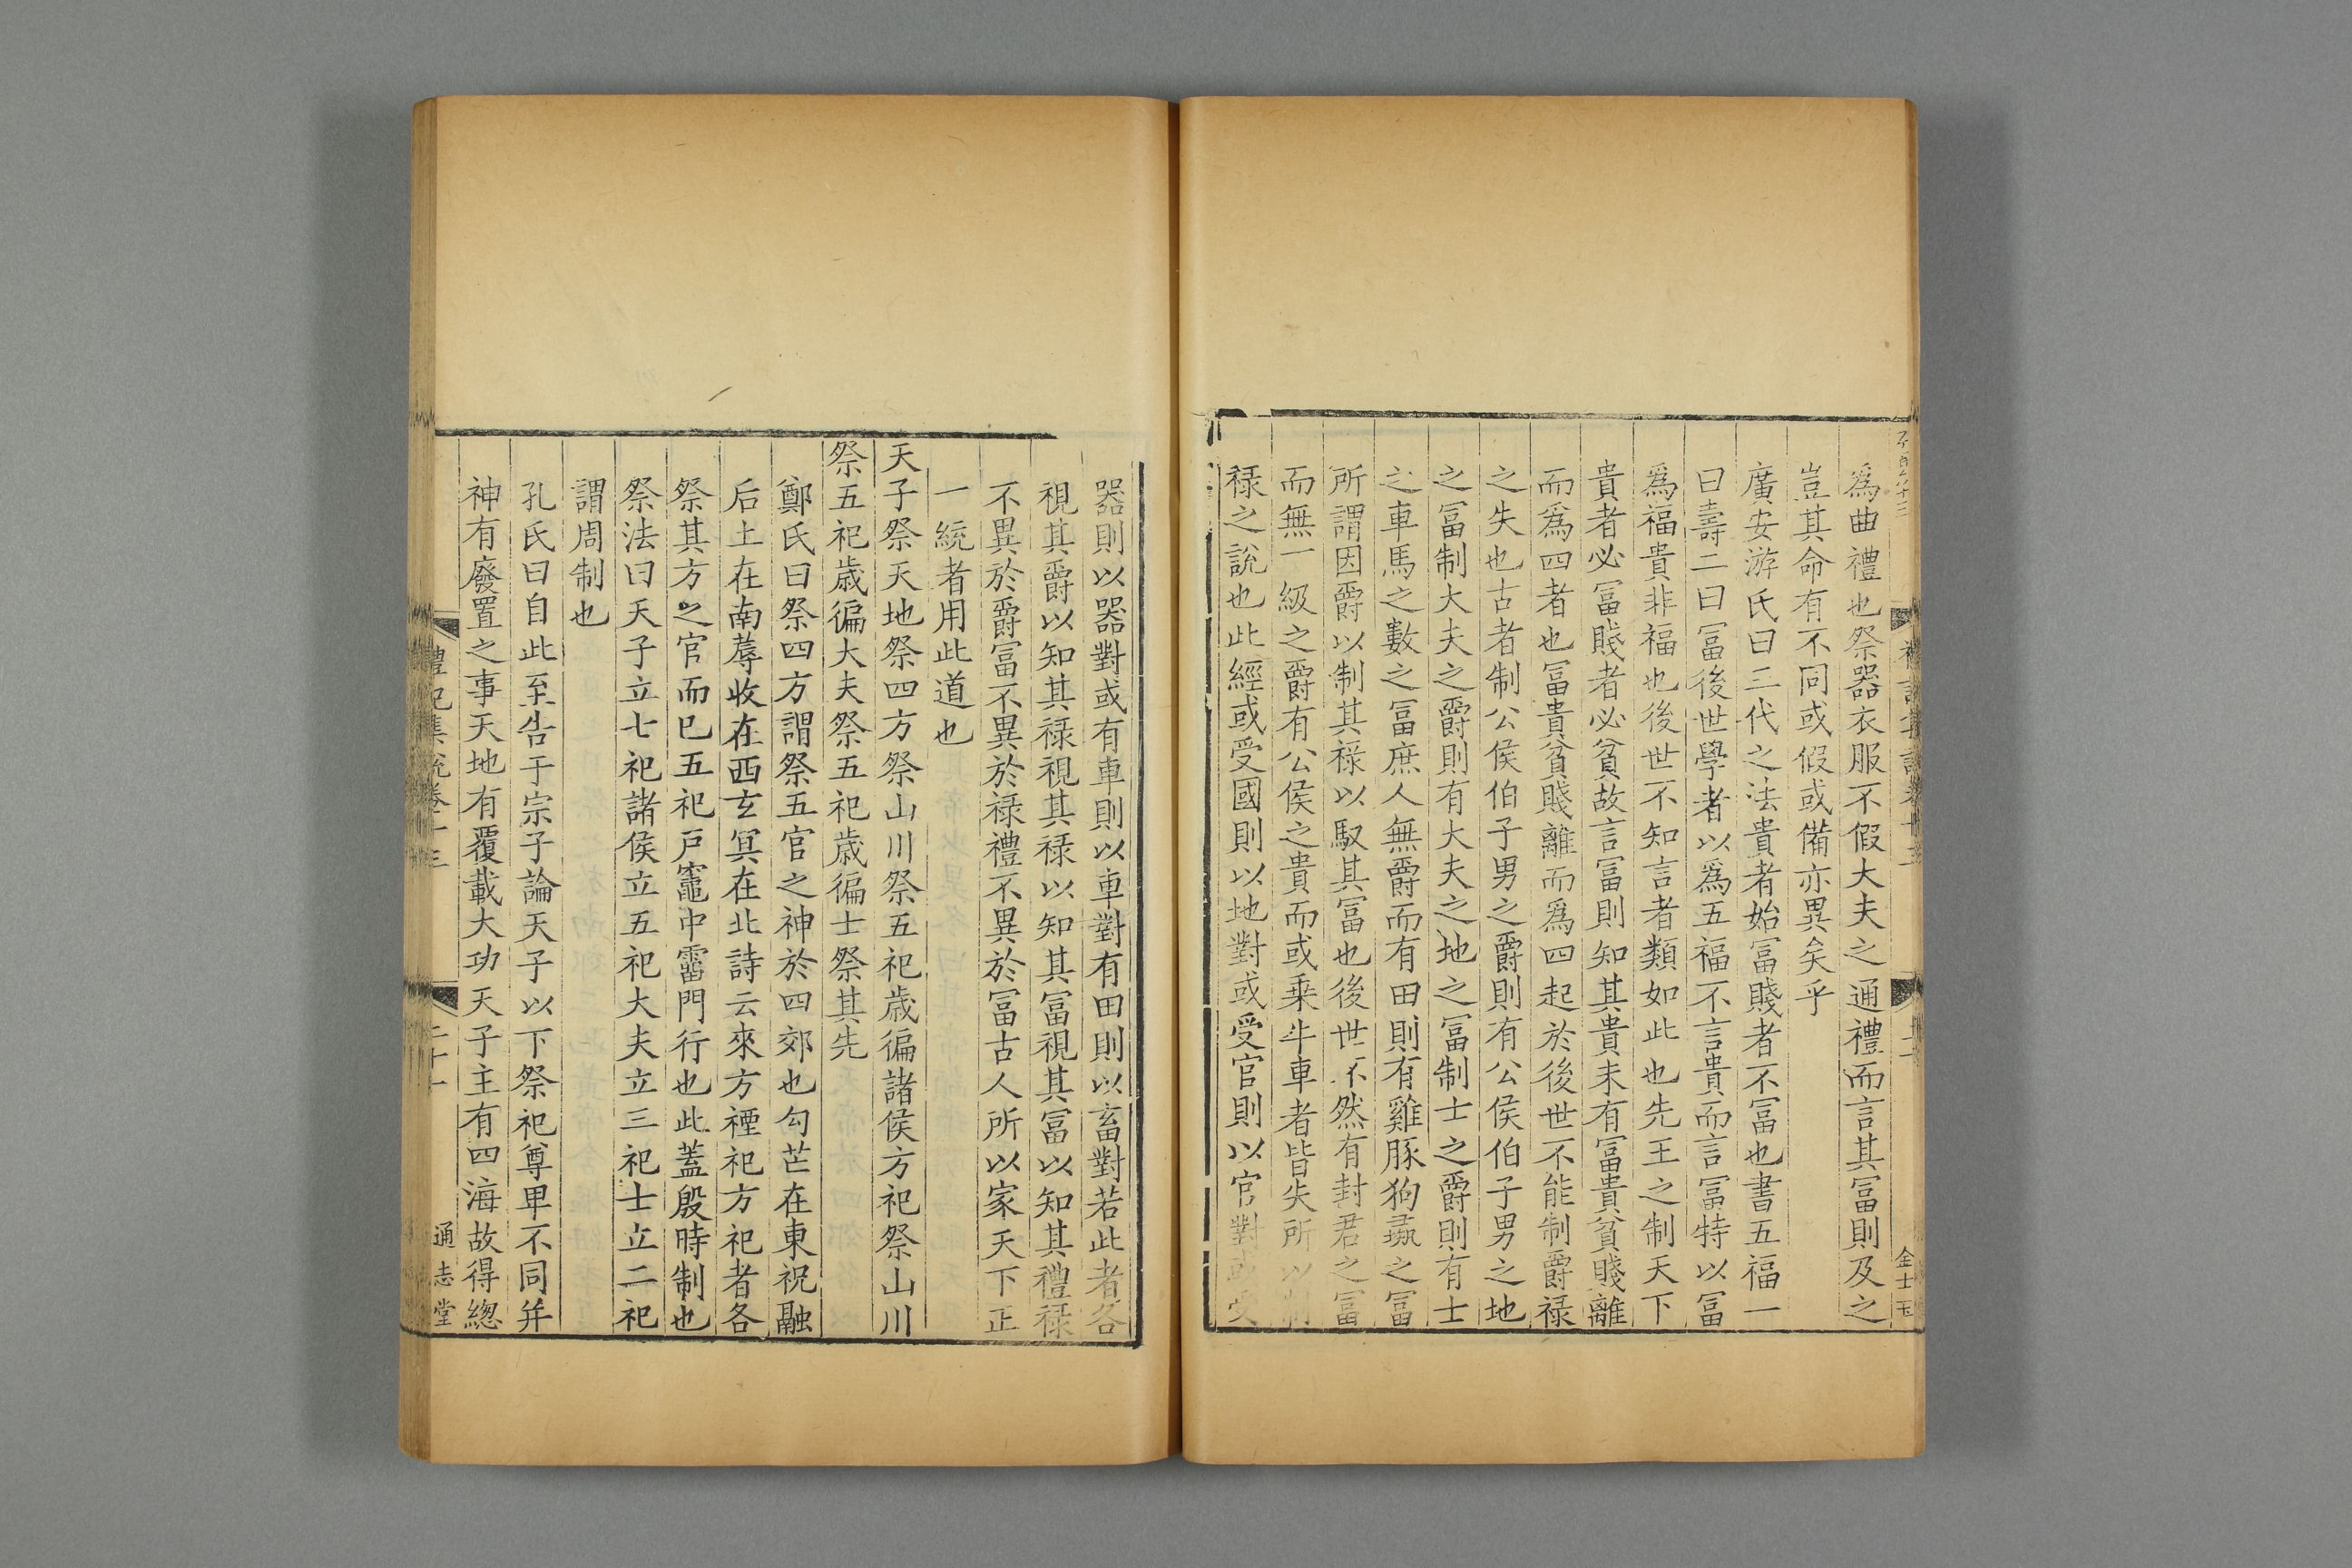 爲曲禮也祭器衣服不假大夫之通禮而言其冨則及之
豈其命有不同或假或備亦異矣乎
廣安游氏曰三代之法貴者始冨賤者不冨也書五福一
曰壽二曰冨後世學者以爲五福不言貴而言冨特以冨
爲福貴非福也後世不知言者類如此也先王之制天下
貴者必冨賤者必貧故言冨則知其貴未有冨貴貧賤離
而爲四者也冨貴貧賤離而爲四起於後世不能制爵禄
之失也古者制公侯伯子男之爵則有公侯伯子男之地
之冨制大夫之爵則有大夫之地之冨制士之爵則有士
之車馬之數之冨庶人無爵而有田則有雞豚狗彘之冨
所謂因爵以制其禄以馭其冨也後世不然有封君之冨
而無一級之爵有公侯之貴而或乗牛車者皆失所以制
禄之說也此經或受國則以地對或受官則以官對或受
器則以器對或有車則以車對有田則以畜對若此者各
視其爵以知其禄視其禄以知其冨視其冨以知其禮禄
不異於爵冨不異於禄禮不異於冨古人所以家天下正
一統者用此道也
天子祭天地祭四方祭山川祭五祀歳徧諸侯方祀祭山川
祭五祀歳徧大夫祭五祀歳徧士祭其先
鄭氏曰祭四方謂祭五官之神於四郊也勾芒在東祝融
后土在南蓐收在西玄冥在北詩云來方禋祀方祀者各
祭其方之官而已五祀戸竈中霤門行也此蓋殷時制也
祭法曰天子立七祀諸侯立五祀大夫立三祀士立二祀
謂周制也
孔氏曰自此至告于宗子論天子以下祭祀尊卑不同并
神有廢置之事天地有覆載大功天子主有四海故得緫
禮記集說卷十三
二十一
通志堂
金士玉